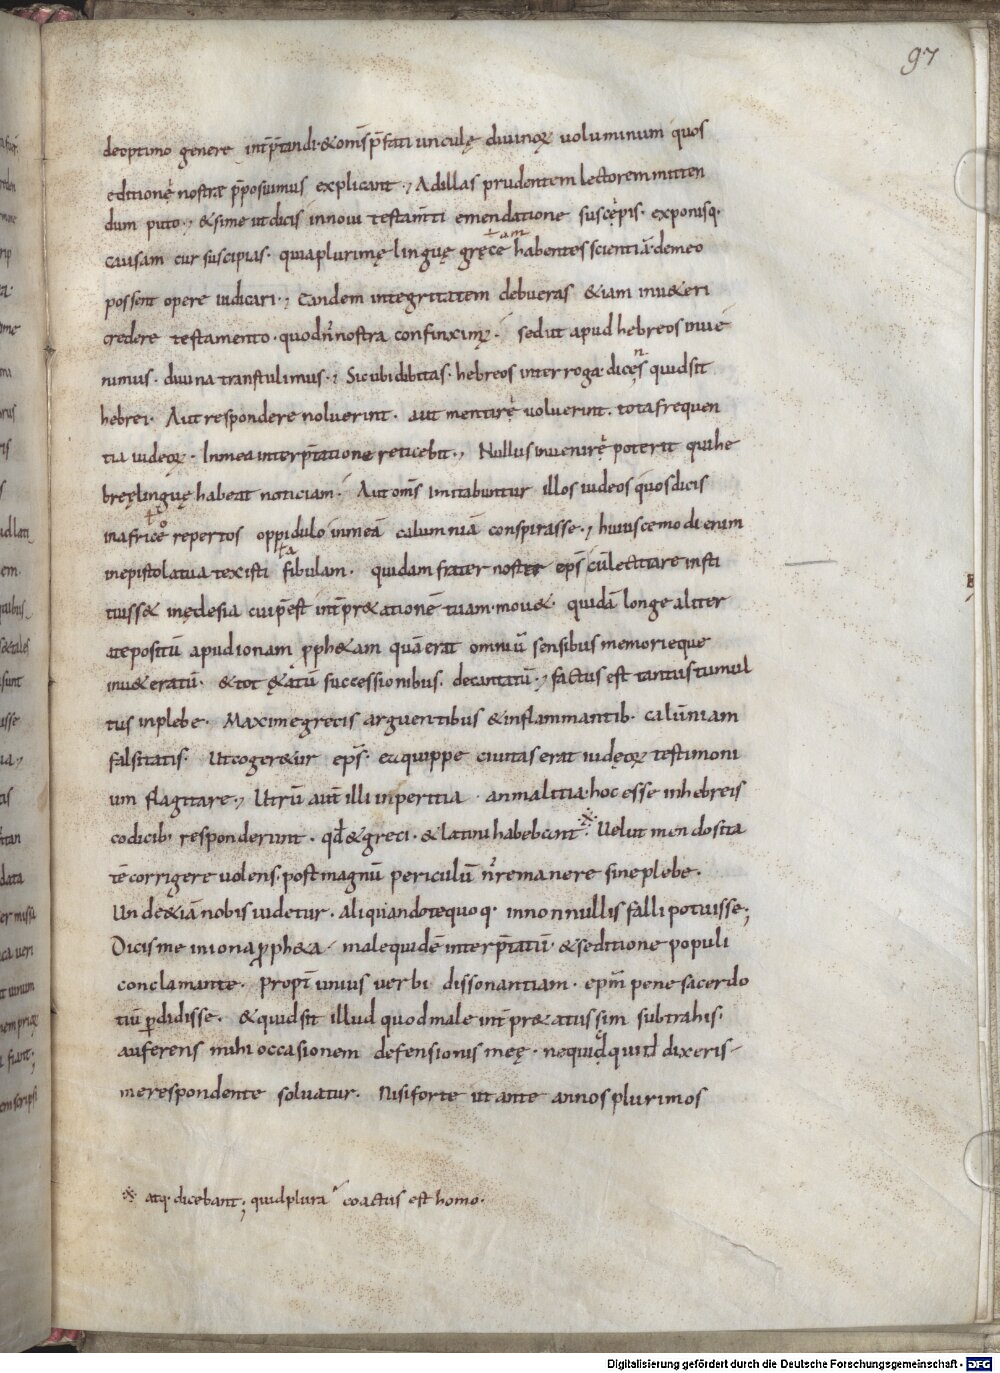 97
deoptimo genere int̄p̄tandi·&om̄s p̄fatiunculę diuinoꝝ uoluminum quos
editionę nostrae p̄posuimus explicant·, Adillas prudentem lectorem mitten
dum puto·, &sime utdicis innoui testam̄ti emendatione suscępis· exponisq·
causam cur suscipias· quiaplurimę linguę gręce ł am habentes scientiā· demeo
possent opere iudicari·, Eandem integritatem debueras &iam inu&eri
credere testamento· quodn̄ nostra confinximꝰ· sedut apud hebreos inue
nimus· diuina transtulimus·, Sicubi dubitas· hebreos interroga· dicęs n quidsit
hebrei· Aut respondere noluerint· aut mentirę uoluerint· tota frequen
tia iudeoꝝ· Inmea interp̄tatione reticebit·, Nullus inuenirę poterit quihe
bręęlinguę habeat noticiam· Aut om̄s imitabuntur illos iudeos quosdicis
inafrice ł o repertos oppidulo inmeā calumniā conspirasse·, huiuscemodi enim
inepistolatua texisti fibulam ł a· quidam frater noster ep̄s cū lectitare insti
tuiss& inęclesia cuip̄est int̄pr&ationē tuam· mou&· quidā longe aliter
atepositū apudionam ꝓph&am quāerat omniū sensibus memorieque
inu&eratū· &tot ę&atū successionibus· decantatū·, factus est tantus tumul
tus inplebe· Maxime grecis arguentibus &inflammantib· calūniam
falsitatis· Utcoger&ur ep̄s· ea quippe ciuitas erat iudęoꝝ testimoni
um flagitare·, Utrū aut̄ illi inperitia· anmalitia hoc esse inhebreis
codicib; responderunt· qđ&greci· &latini habebant ※· Uelut mendosita
tē corrigere uolens· post magnū periculū n̄ remanere sineplebe·
Unde&iā nobis uidetur· aliquandotequoq· innonnullis falli potuisse;
Dicisme iniona ꝓph&a malequidē interp̄tatū· &seditione populi
conclamante· propt̄ unius uerbi dissonantiam· ep̄m pene sacerdo
tiū ꝑdidisse· &quidsit illud quodmale int̄pr&atussim subtrahis·
auferens mihi occasionem defensionis meę· nequidquid dixeris
merespondente soluatur· Nisiforte ut ante annos plurimos
※ atq· dicebant; quidplura coactus est homo·
Digitalisierung gefördert durch die Deutsche Forschungsgemeinschaft - DFG